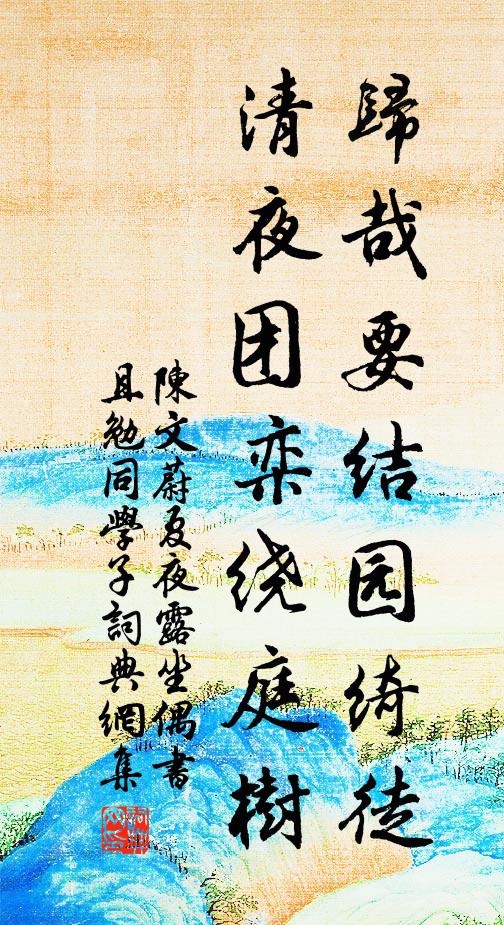 歸哉要结园绮徒
清夜团栾绕庭樹
陳文蔚夏夜露坐偶書
且勉同學子詞典網集